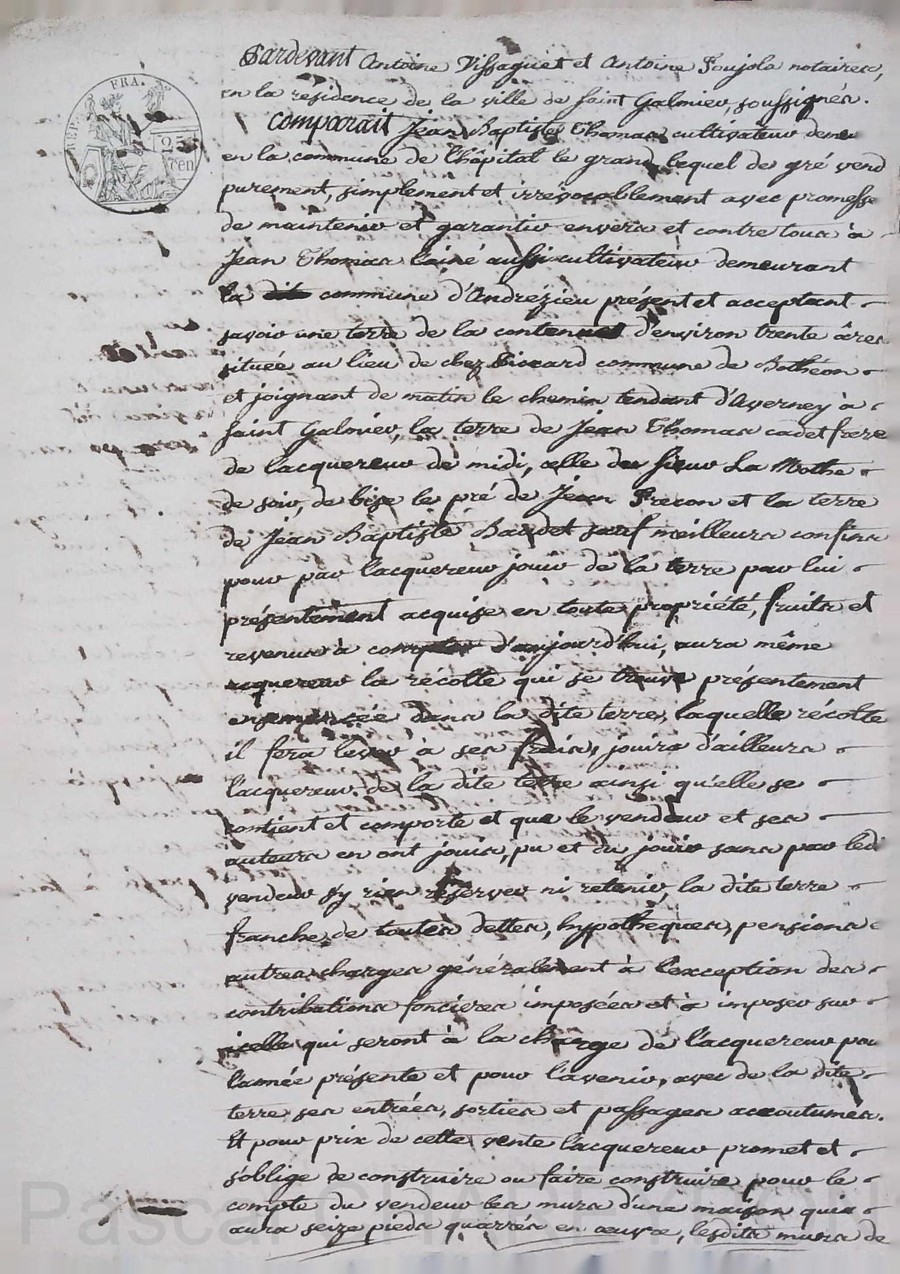 REP. FRA.
25
cen
Pardevant Antoine Vissaguet et Antoine Poujola notaires,
en la résidence de la ville de saint Galmier, soussignés.
Comparait Jean Baptiste Thomas cultivateur deme
en la commune de l'hôpital le grand, lequel de gré vend
purement, simplement et irrévocablement avec promesse
de maintenir et garantir envers et contre tous à
Jean Thomas l'ainé aussi cultivateur demeurant
la commune d'Andrézieu présent et acceptant
savoir une terre de la contenue d'environ trente âres
située au lieu de chez Siccard commune de Bothéon
et joignant de matin le chemin tendant d'Averney à
saint Galmier, la terre de Jean Thomas cadet frere
de lacquereur de midi, celle du sieur La Mothe
de soir, de bize le pré de Jean Frecon et la terre
de Jean Baptiste Baudet sauf meilleurs confins
pour par lacquereur jouir de la terre par lui
présentement acquise en toute propriété, fruits et
revenus à compter d'aujourd'hui, aura même
acquereur la récolte qui se trouve présentement
ensemencée dans la dite terre, laquelle récolte
il fera lever à ses frais, jouira d'ailleurs
lacquereur de la dite terre ainsi qu'elle se
contient et comporte et que le vendeur et ses
auteurs en ont jouis, pu et du jouir sans par ledi
vendeur s'y rien réserver ni retenir, la dite terre
franche de toutes dettes, hypotheques, pensions
autres charges généralement à l'exception des
contributions foncieres imposées et à imposer sur
icelle qui seront à la charge de l'acquereur pou
l'année présente et pour l'avenir, avec de la dite
terre ses entrées, sorties et passages accoutumés.
Et pour prix de cette vente l'acquereur promet et
s'oblige de construire ou faire construire pour le
compte du vendeur les murs d'une maison qui
aura seize pieds quarrés en œuvre, lesdits murs de